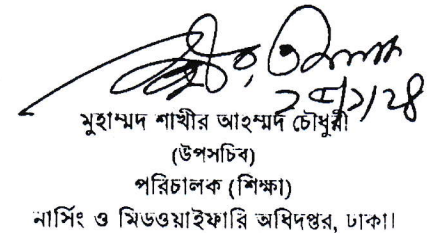 মুহাম্মদ শাখীর আহম্মদ চৌধুরী
(উপসচিব)
পরিচালক (শিক্ষা)
নার্সিং ও মিডওয়াইফারি অধিদপ্তর, ঢাকা।